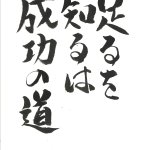 足るを
知るは
成功の道